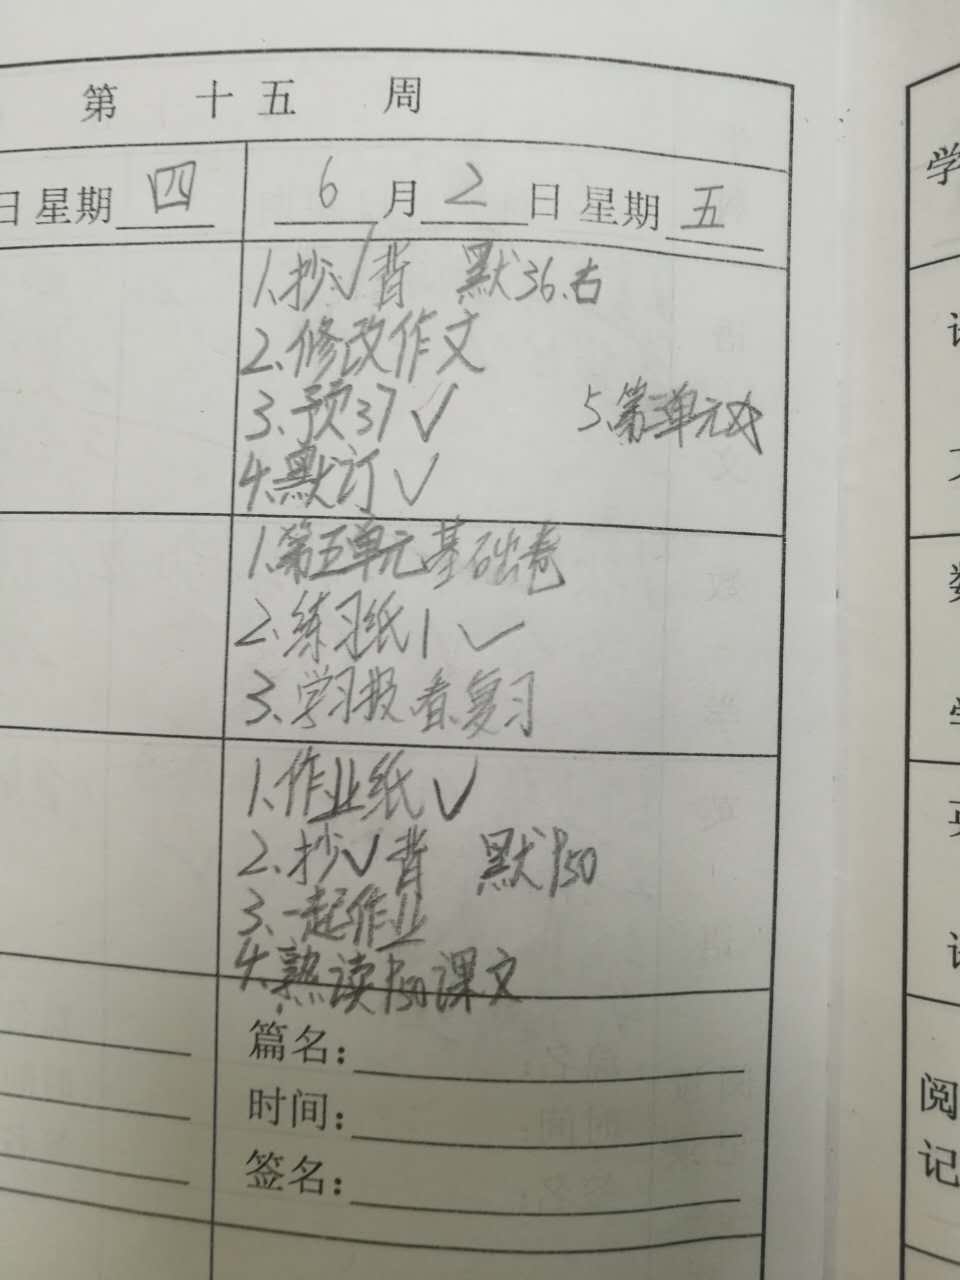 第 十五 周
日 星期 四
6 月 2 日 星期 五
1.抄√背 默36.右
2.修改作文
3.预37 √
5.第三单元
4.默订 √
1.第五单元基础卷
2.练习纸1 √
3.学习报.看.复习
1.作业纸 √
2.抄√背 默P50
3.一起作业
4.熟读P50课文
篇名：
时间：
签名：
学
数
学
阅
记